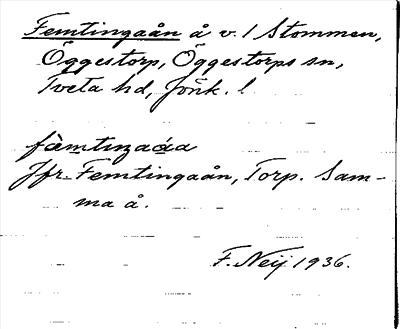 Femtingaån å v. l Stommen,
Öggestorp, Öggestorps sn,
Tveta hd, Jönk. l
fèmtıŋaáa
Jfr. Femtingaån, Torp. Sam-
ma å.
F. Neij 1936.